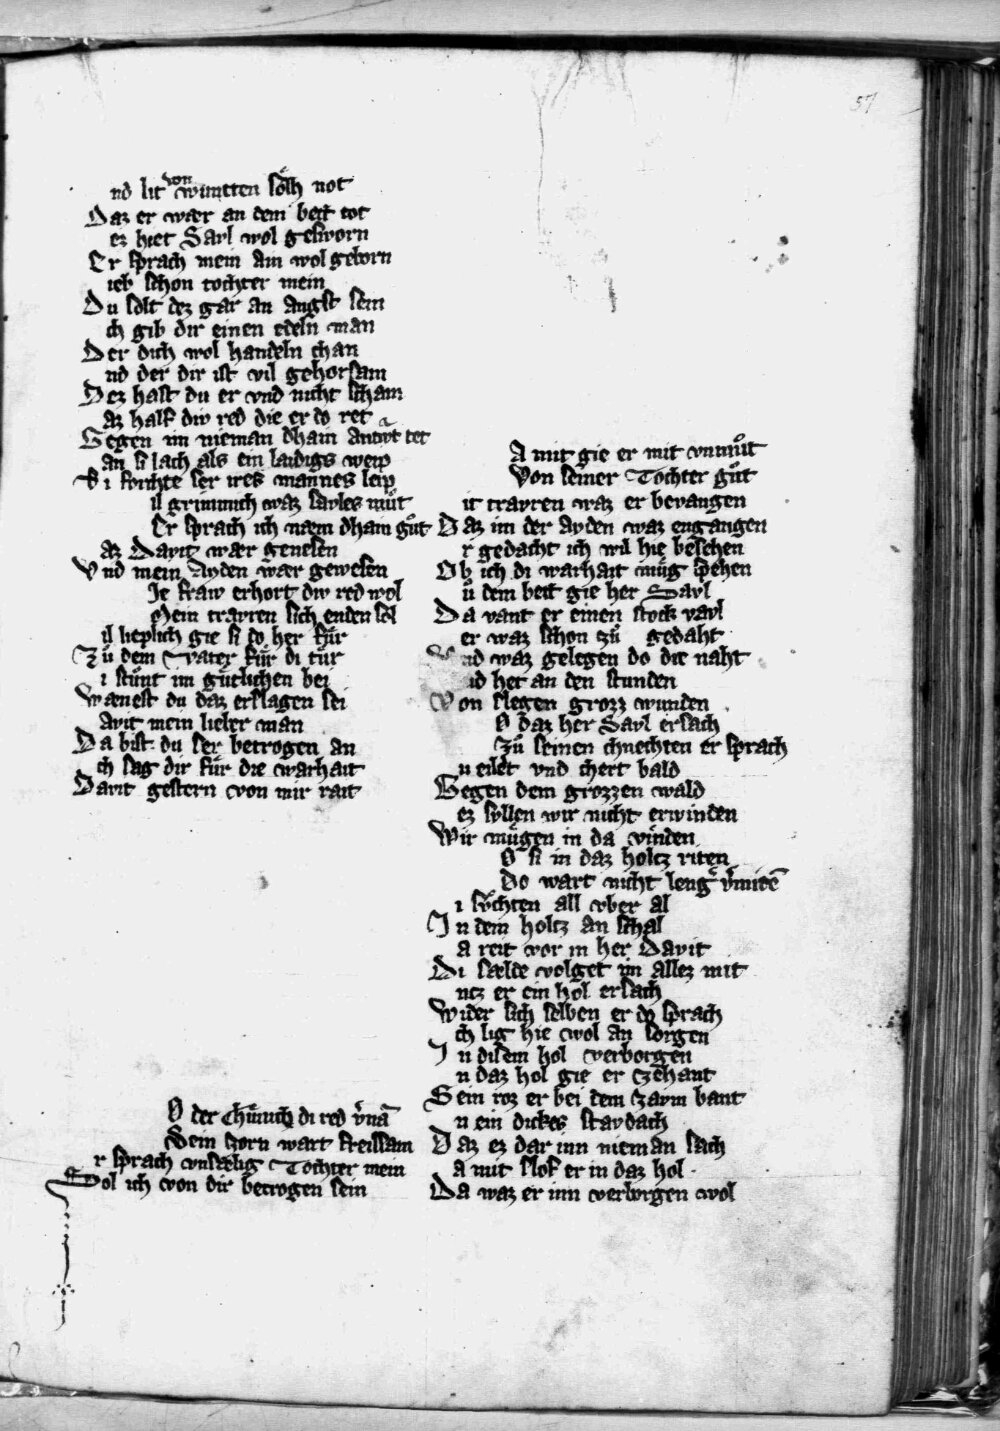 57
nd lit von wuntten sölh not
Daz er wær an dem bett tot
ez hiet Sarl wol gesworn
Er sprach mein ain wol geborn
ieb schon tochter mein
Du solt dez gar an angst sein
ch gib dir einen edeln man
Der dich wol handeln chan
nd der dir ist vil gehorsam
Dez hast du er vnd nicht scham
az half div red die er do ret
Gegen im nieman dhain antwrt tet
an si lach als ein laidigs weip
Si forchte ser ires mannes leip
il grimmich waz savles mút
Er sprach ich næm dhain gůt
az Davit wær genesen
Vnd mein Ayden wær gewesen
Je fraw erhort div red wol
Mein travren sich enden sol
il lieplich gie si do her für
Zů dem Vater für di tür
i stůnt im gütlichen bei
Wænest du daz erslagen sei
avit mein lieber man
Da bist du ser betrogen an
ch sag dir für die warhait
Davit gestern von mir rait
O der Chünich di red v̄nā
Sein zorn wart freissam
r sprach vnsælig Tochter mein
Sol ich von dir betrogen sein
A mit gie er mit vnmůt
Von seiner Tochter gůt
it travren waz er bevangen
Daz im der ayden waz engangen
r gedacht ich wil hie besehen
Ob ich di warhait müg spehen
ů dem bett gie her Savl
Da vant er einen stock vavl
er waz schon zů gedaht
Vnd waz gelegen do die naht
id het an den stunden
Von slegen grozz wunden
O daz her Savl ersach
Zů seinen chnechten er sprach
u eilet vnd chert bald
Gegen dem grozzen wald
ez syllen wir nicht erwinden
Wir mügen in da vinden
O si in daz holtz riten
Do wart nicht leng' v'mitē
i sůchten all vber al
In dem holtz an schal
a reit vor in her Davit
Di sælde volget im allez mit
ntz er ein hol ersach
Wider sich selben er do sprach
ch lig hie wol an sorgen
In disem hol verborgen
n daz hol gie er zehant
Sein roz er bei dem zavm bant
n ein dickes stavdach
Daz ez dar inn nieman sach
a mit slof er in daz hol
Da waz er inn verborgen wol